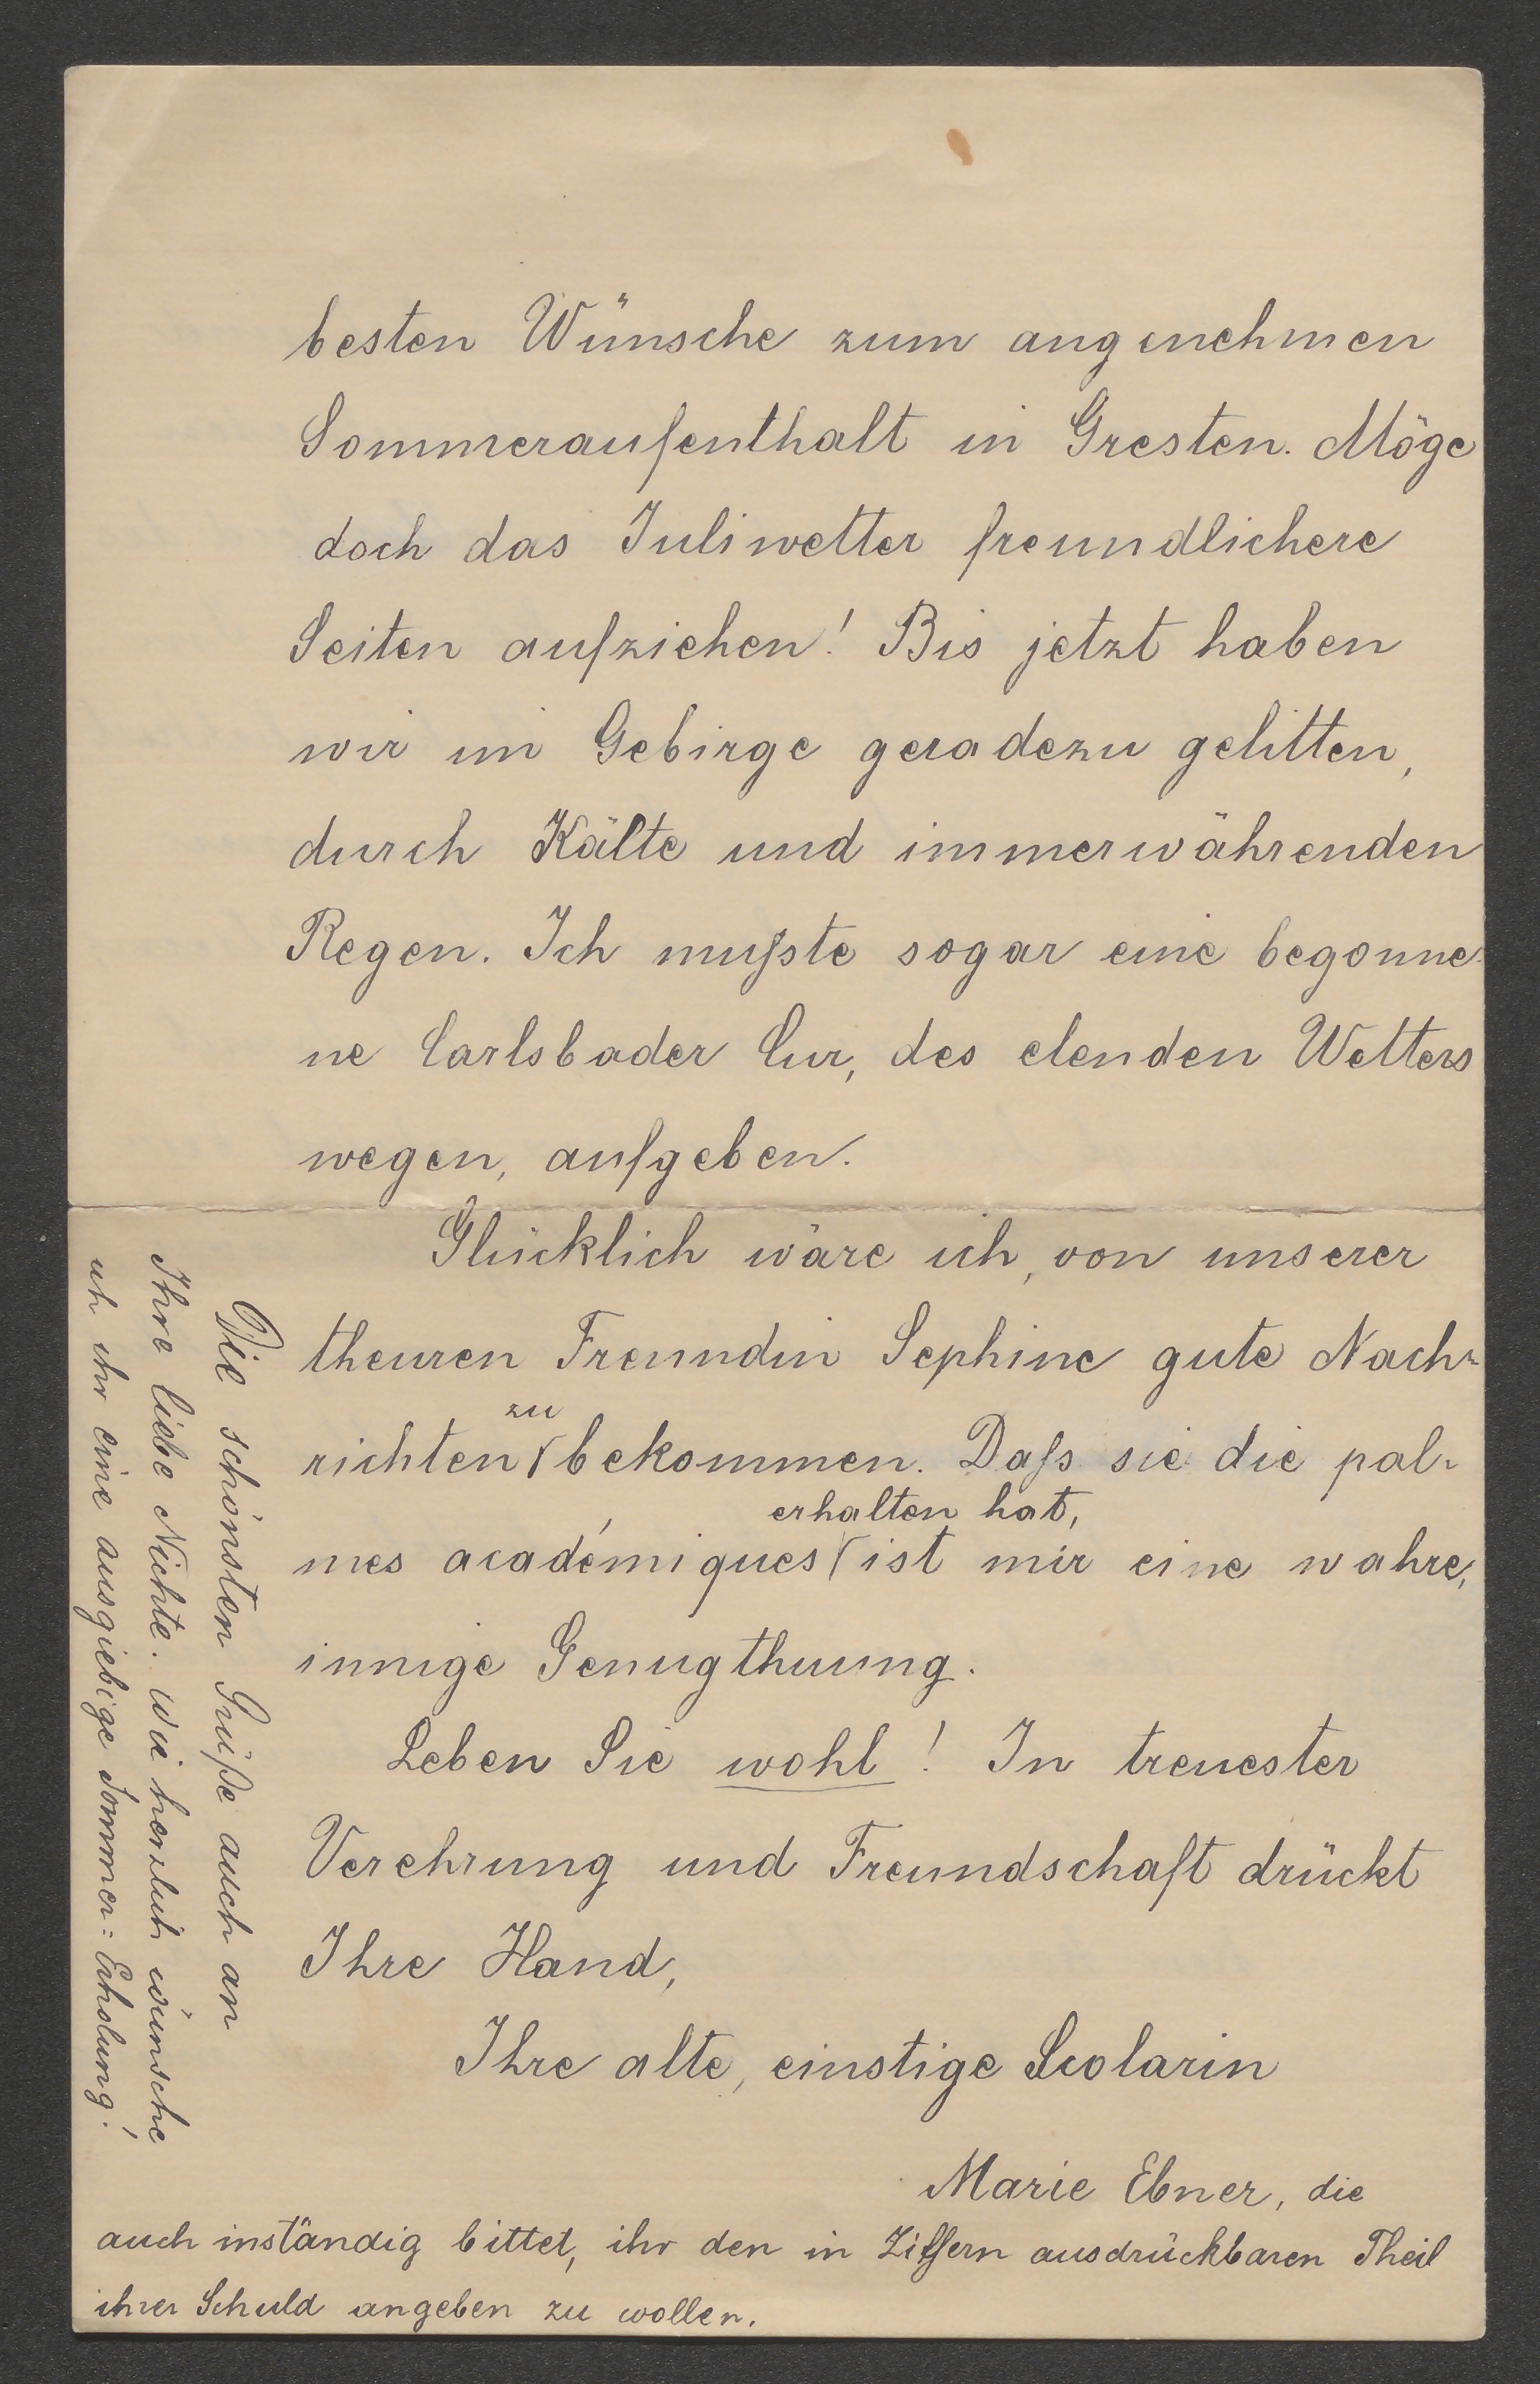 besten Wünsche zum angenehmen
Sommeraufenthalt in Gresten. Möge
doch das Juliwetter freundlichere
Seiten aufziehen! Bis jetzt haben
wir im Gebirge geradezu gelitten,
durch Kälte und immerwährenden
Regen. Ich mußste sogar eine begonne-
ne Carlsbader Cur, des elenden Wetters
wegen, aufgeben.
Glücklich wäre ich, von unserer
theuren Freundin Sephine gute Nach-
zu
richten bekommen. Daß sie die pal-
erhalten hat,
mes académiques ist mir eine wahre,
innige Genugthuung.
Leben Sie wohl! In treuester
Verehrung und Freundschaft drückt
Ihre Hand,
Ihre alte, einstige Scolarin
Marie Ebner, die
auch inständig bittet, ihr den in Ziffern ausdrückbaren Theil
ihrer Schuld angeben zu wollen.
Die schönsten Grüße auch an
Ihre liebe Nichte. Wie herzlich wünsche
ich ihr eine ausgiebige Sommer=Erholung!